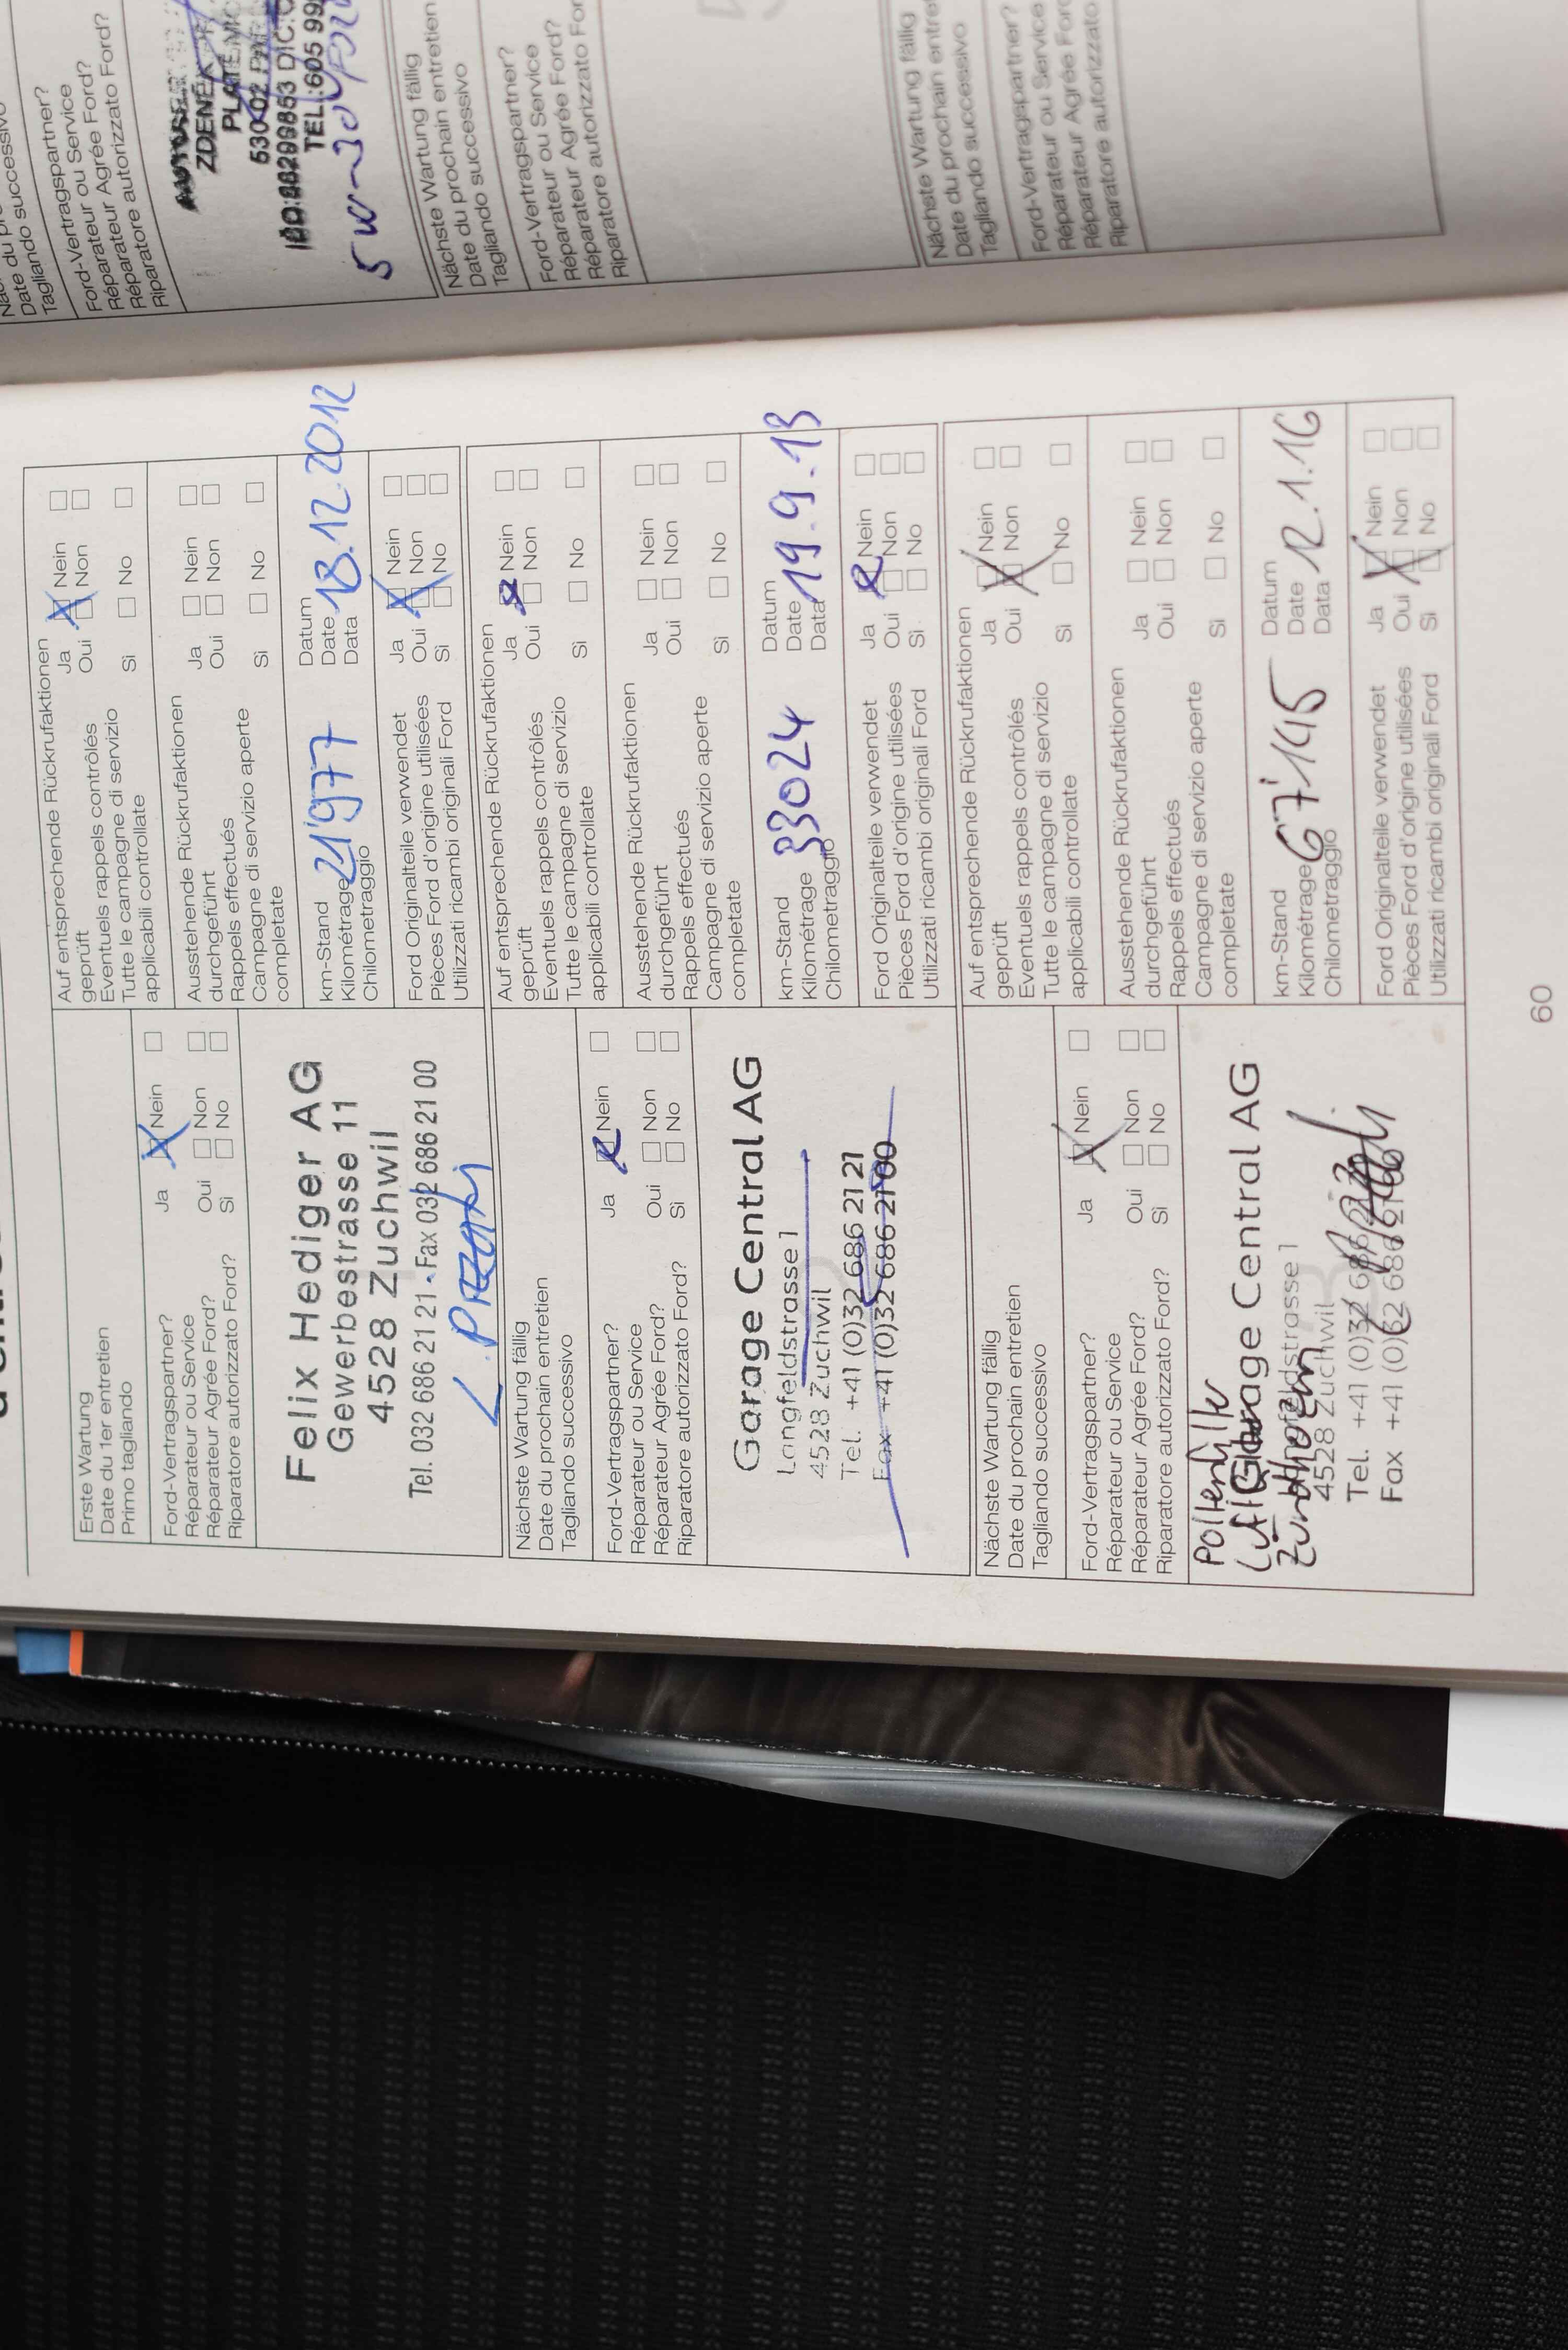 Erste Wartung
Date du 1er entretien
Primo tagliando
Ford-Vertragspartner?
Réparateur ou Service
Réparateur Agrée Ford?
Riparatore autorizzato Ford?
Ja Nein
Oui Non
Si No
Felix Hediger AG
Gewerbestrasse 11
4528 Zuchwil
Tel. 032 686 21 21 • Fax 032 686 21 00
Auf entsprechende Rückrufaktionen
geprüft
Eventuels rappels contrôlés
Tutte le campagne di servizio
applicabili controllate
Ja Nein
Oui Non
Si No
Ausstehende Rückrufaktionen
durchgeführt
Rappels effectués
Campagne di servizio aperte
completate
Ja Nein
Oui Non
Si No
km-Stand
Kilométrage 21'977
Chilometraggio
Datum
Date 18.12.2012
Data
Ford Originalteile verwendet
Pièces Ford d'origine utilisées
Utilizzati ricambi originali Ford
Ja Nein
Oui Non
Si No
Nächste Wartung fällig
Date du prochain entretien
Tagliando successivo
Ford-Vertragspartner?
Réparateur ou Service
Réparateur Agrée Ford?
Riparatore autorizzato Ford?
Ja Nein
Oui Non
Si No
Garage Central AG
Langfeldstrasse 1
4528 Zuchwil
Tel. +41 (0)32 686 21 21
Fax +41 (0)32 686 21 00
Auf entsprechende Rückrufaktionen
geprüft
Eventuels rappels contrôlés
Tutte le campagne di servizio
applicabili controllate
Ja Nein
Oui Non
Si No
Ausstehende Rückrufaktionen
durchgeführt
Rappels effectués
Campagne di servizio aperte
completate
Ja Nein
Oui Non
Si No
km-Stand
Kilométrage 33024
Chilometraggio
Datum
Date 19.9.13
Data
Ford Originalteile verwendet
Pièces Ford d'origine utilisées
Utilizzati ricambi originali Ford
Ja Nein
Oui Non
Si No
Nächste Wartung fällig
Date du prochain entretien
Tagliando successivo
Ford-Vertragspartner?
Réparateur ou Service
Réparateur Agrée Ford?
Riparatore autorizzato Ford?
Ja Nein
Oui Non
Si No
Pollenfilter
Garage Central AG
4528 Zuchwil
Tel. +41 (0)32 686
Fax +41 (0)32 686 21
Auf entsprechende Rückrufaktionen
geprüft
Eventuels rappels contrôlés
Tutte le campagne di servizio
applicabili controllate
Ja Nein
Oui Non
Si No
Ausstehende Rückrufaktionen
durchgeführt
Rappels effectués
Campagne di servizio aperte
completate
Ja Nein
Oui Non
Si No
km-Stand
Kilométrage 67'145
Chilometraggio
Datum
Date 12.1.16
Data
Ford Originalteile verwendet
Pièces Ford d'origine utilisées
Utilizzati ricambi originali Ford
Ja Nein
Oui Non
Si No
60
Tagliando successivo
Ford-Vertragspartner?
Réparateur ou Service
Réparateur Agrée Ford?
Riparatore autorizzato Ford?
ZDENĚK
530 02
TEL.:605
5W-30
Nächste Wartung fällig
Date du prochain entretien
Tagliando successivo
Ford-Vertragspartner?
Réparateur ou Service
Réparateur Agrée Ford?
Riparatore autorizzato
Nächste Wartung fällig
Date du prochain
Tagliando successivo
Ford-Vertragspartner?
Réparateur ou Service
Réparateur Agrée
Riparatore autorizzato